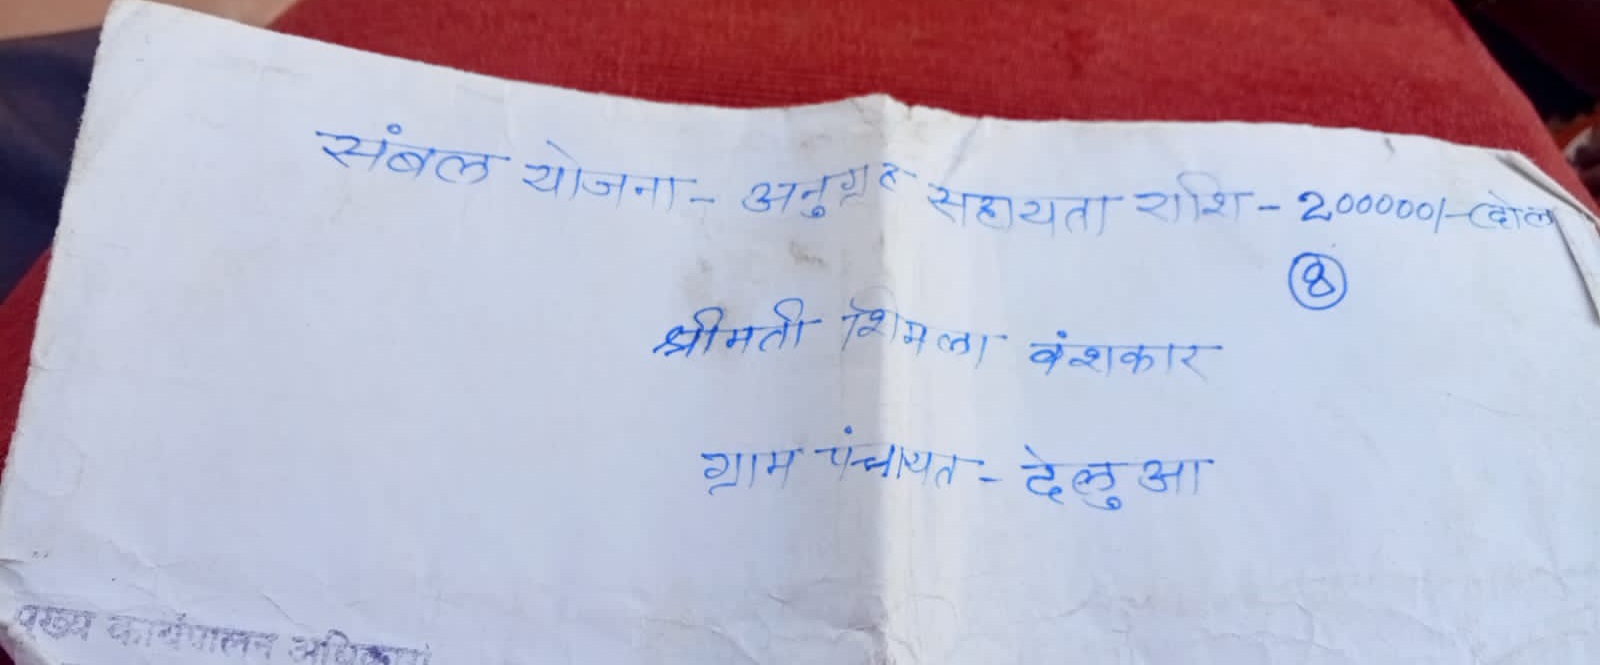 संबल योजना - अनुग्रह सहायता राशि - 200000/- (दो ल
8
श्रीमती शिमला वंशकार
ग्राम पंचायत - देलुआ
मुख्य कार्यपालन अधिकारी